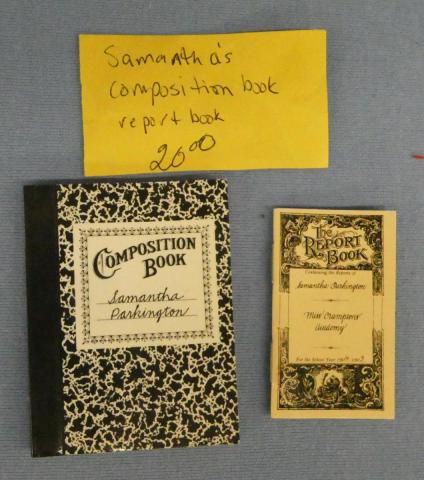 Samantha's
composition book
report book
20.00
COMPOSITION
BOOK
Samantha
Parkington
The
REPORT
BOOK
Containing the Reports of
Samantha Parkington
Miss Crampton's
Academy
For the School Year